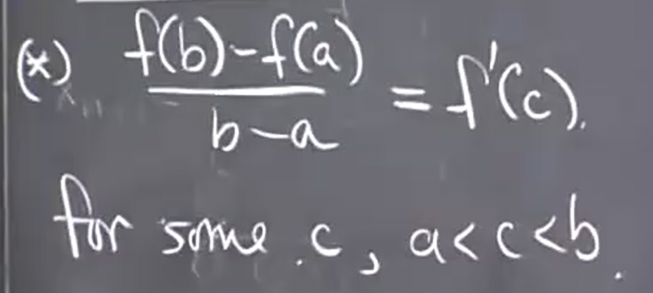 (*) f(b)-f(a) / b-a = f'(c).
for some c, a<c<b.